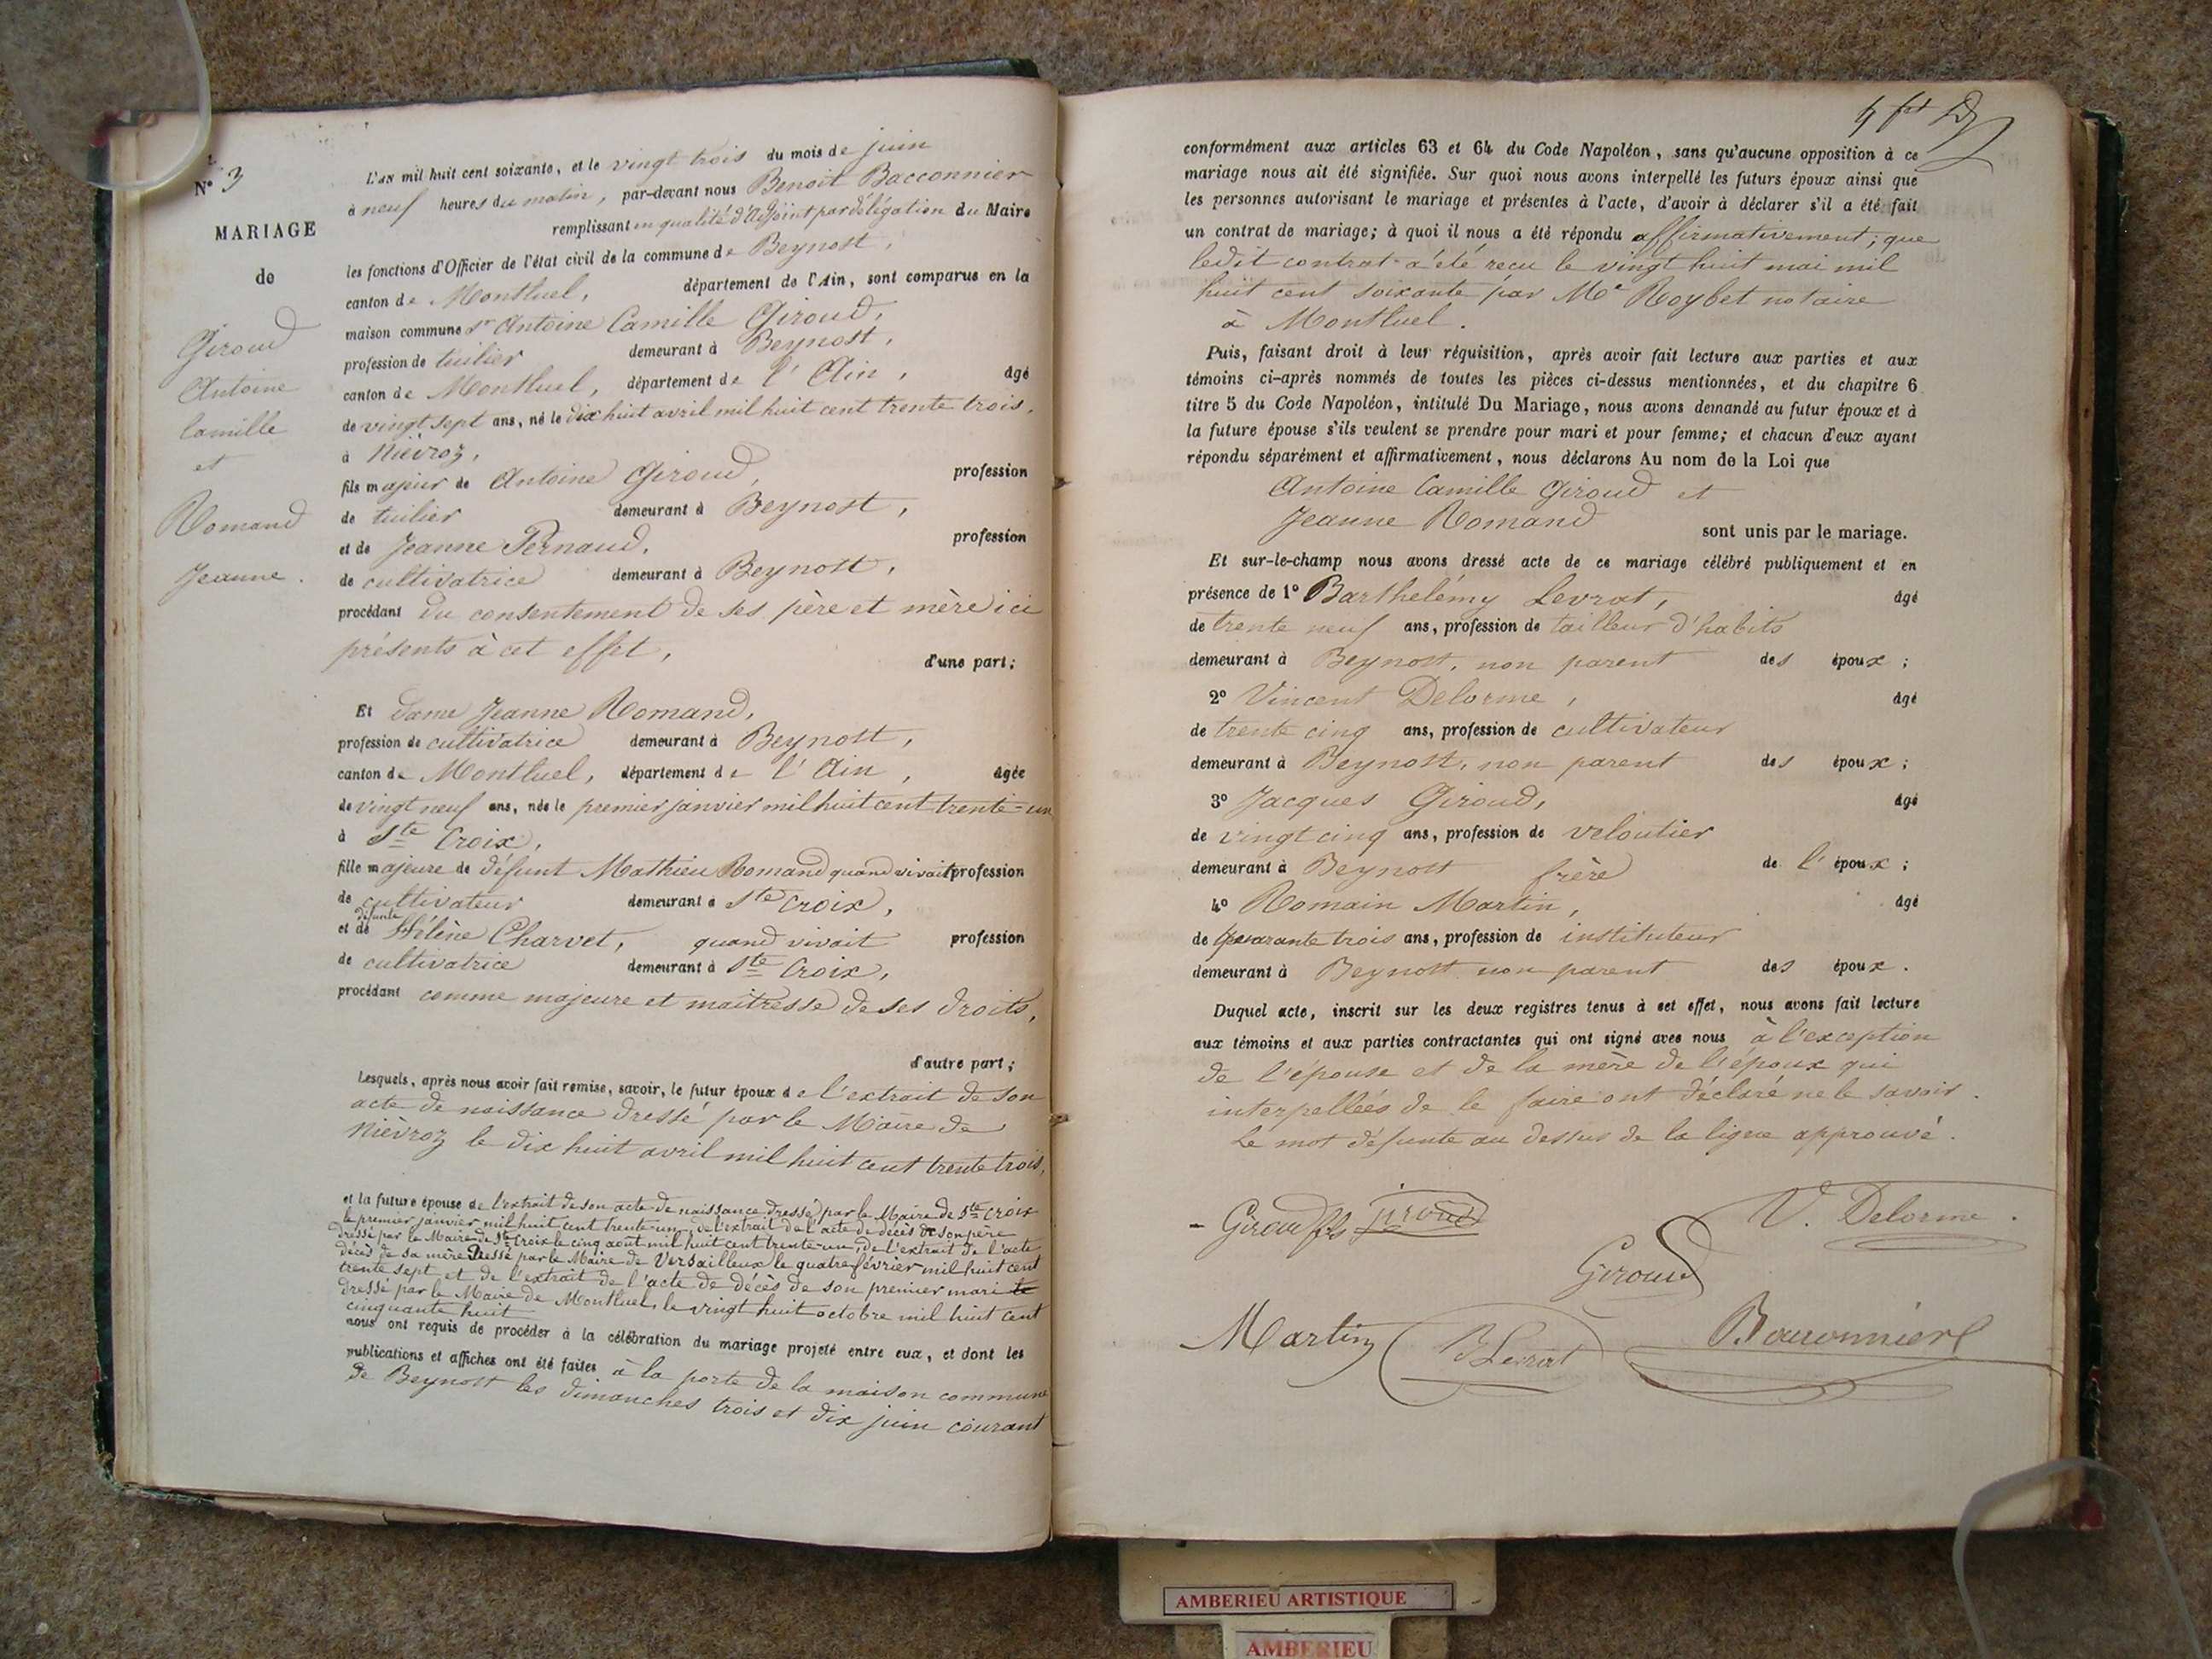 N° 3
MARIAGE
de
Giroud
Antoine
Camille
et
Romand
Jeanne.
L'an mil huit cent soixante, et le vingt trois du mois de juin
à neuf heures du matin, par-devant nous Benoit Bacconnier
remplissant en qualité d'adjoint par délégation du Maire
les fonctions d'Officier de l'état civil de la commune de Beynost,
canton de Montluel, département de l'Ain, sont comparus en la
maison commune Sr Antoine Camille Giroud,
profession de tuilier demeurant à Beynost,
canton de Montluel, département de l'Ain, âgé
de vingt sept ans, né le dix huit avril mil huit cent trente trois,
à Nièvroz,
fils majeur de Antoine Giroud, profession
de tuilier demeurant à Beynost,
et de Jeanne Pernaud, profession
de cultivatrice demeurant à Beynost,
procédant du consentement de ses père et mère ici
présents à cet effet, d'une part;
Et dame Jeanne Romand,
profession de cultivatrice demeurant à Beynost,
canton de Montluel, département de l'Ain, âgée
de vingt neuf ans, née le premier janvier mil huit cent trente-un
à Ste Croix,
fille majeure de défunt Mathieu Romand quand vivait profession
de cultivateur demeurant à Ste Croix,
défunte
et de Hélène Charvet, quand vivait profession
de cultivatrice demeurant à Ste Croix,
procédant comme majeure et maîtresse de ses droits,
d'autre part;
Lesquels, après nous avoir fait remise, savoir, le futur époux de l'extrait de son
acte de naissance dressé par le Maire de
Nièvroz le dix huit avril mil huit cent trente trois,
et la future épouse de l'extrait de son acte de naissance dressé par le Maire de Ste Croix
le premier janvier mil huit cent trente-un, de l'extrait de l'acte de décès de son père
dressé par le Maire de Ste Croix le cinq août mil huit cent trente-un, de l'extrait de l'acte
décès de sa mère dressé par le Maire de Versailleux le quatre février mil huit cent
trente sept et de l'extrait de l'acte de décès de son premier mari
dressé par le Maire de Montluel, le vingt huit octobre mil huit cent
cinquante huit
nous ont requis de procéder à la célébration du mariage projeté entre eux, et dont les
publications et affiches ont été faites à la porte de la maison commune
de Beynost les dimanches trois et dix juin courant
conformément aux articles 63 et 64 du Code Napoléon, sans qu'aucune opposition à ce
mariage nous ait été signifiée. Sur quoi nous avons interpellé les futurs époux ainsi que
les personnes autorisant le mariage et présentes à l'acte, d'avoir à déclarer s'il a été fait
un contrat de mariage; à quoi il nous a été répondu affirmativement; que
ledit contrat a été reçu le vingt huit mai mil
huit cent soixante par Me Roybet notaire
à Montluel.
Puis, faisant droit à leur réquisition, après avoir fait lecture aux parties et aux
témoins ci-après nommés de toutes les pièces ci-dessus mentionnées, et du chapitre 6
titre 5 du Code Napoléon, intitulé Du Mariage, nous avons demandé au futur époux et à
la future épouse s'ils veulent se prendre pour mari et pour femme; et chacun d'eux ayant
répondu séparément et affirmativement, nous déclarons Au nom de la Loi que
Antoine Camille Giroud et
Jeanne Romand
sont unis par le mariage.
Et sur-le-champ nous avons dressé acte de ce mariage célébré publiquement et en
présence de 1° Barthelémy Levrat, âgé
de trente neuf ans, profession de tailleur d'habits
demeurant à Beynost, non parent des époux;
2° Vincent Delorme, âgé
de trente cinq ans, profession de cultivateur
demeurant à Beynost, non parent des époux;
3° Jacques Giroud, âgé
de vingt cinq ans, profession de veloutier
demeurant à Beynost frère de l'époux;
4° Romain Martin, âgé
de quarante trois ans, profession de instituteur
demeurant à Beynost non parent des époux.
Duquel acte, inscrit sur les deux registres tenus à cet effet, nous avons fait lecture
aux témoins et aux parties contractantes qui ont signé avec nous à l'exception
de l'épouse et de la mère de l'époux qui
interpellées de le faire ont déclaré ne le savoir.
Le mot défunte au dessus de la ligne approuvé.
Giroud fils jiroud V. Delorme.
Giroud
Martin B Levrat Bacconnier
AMBERIEU ARTISTIQUE
AMBERIEU